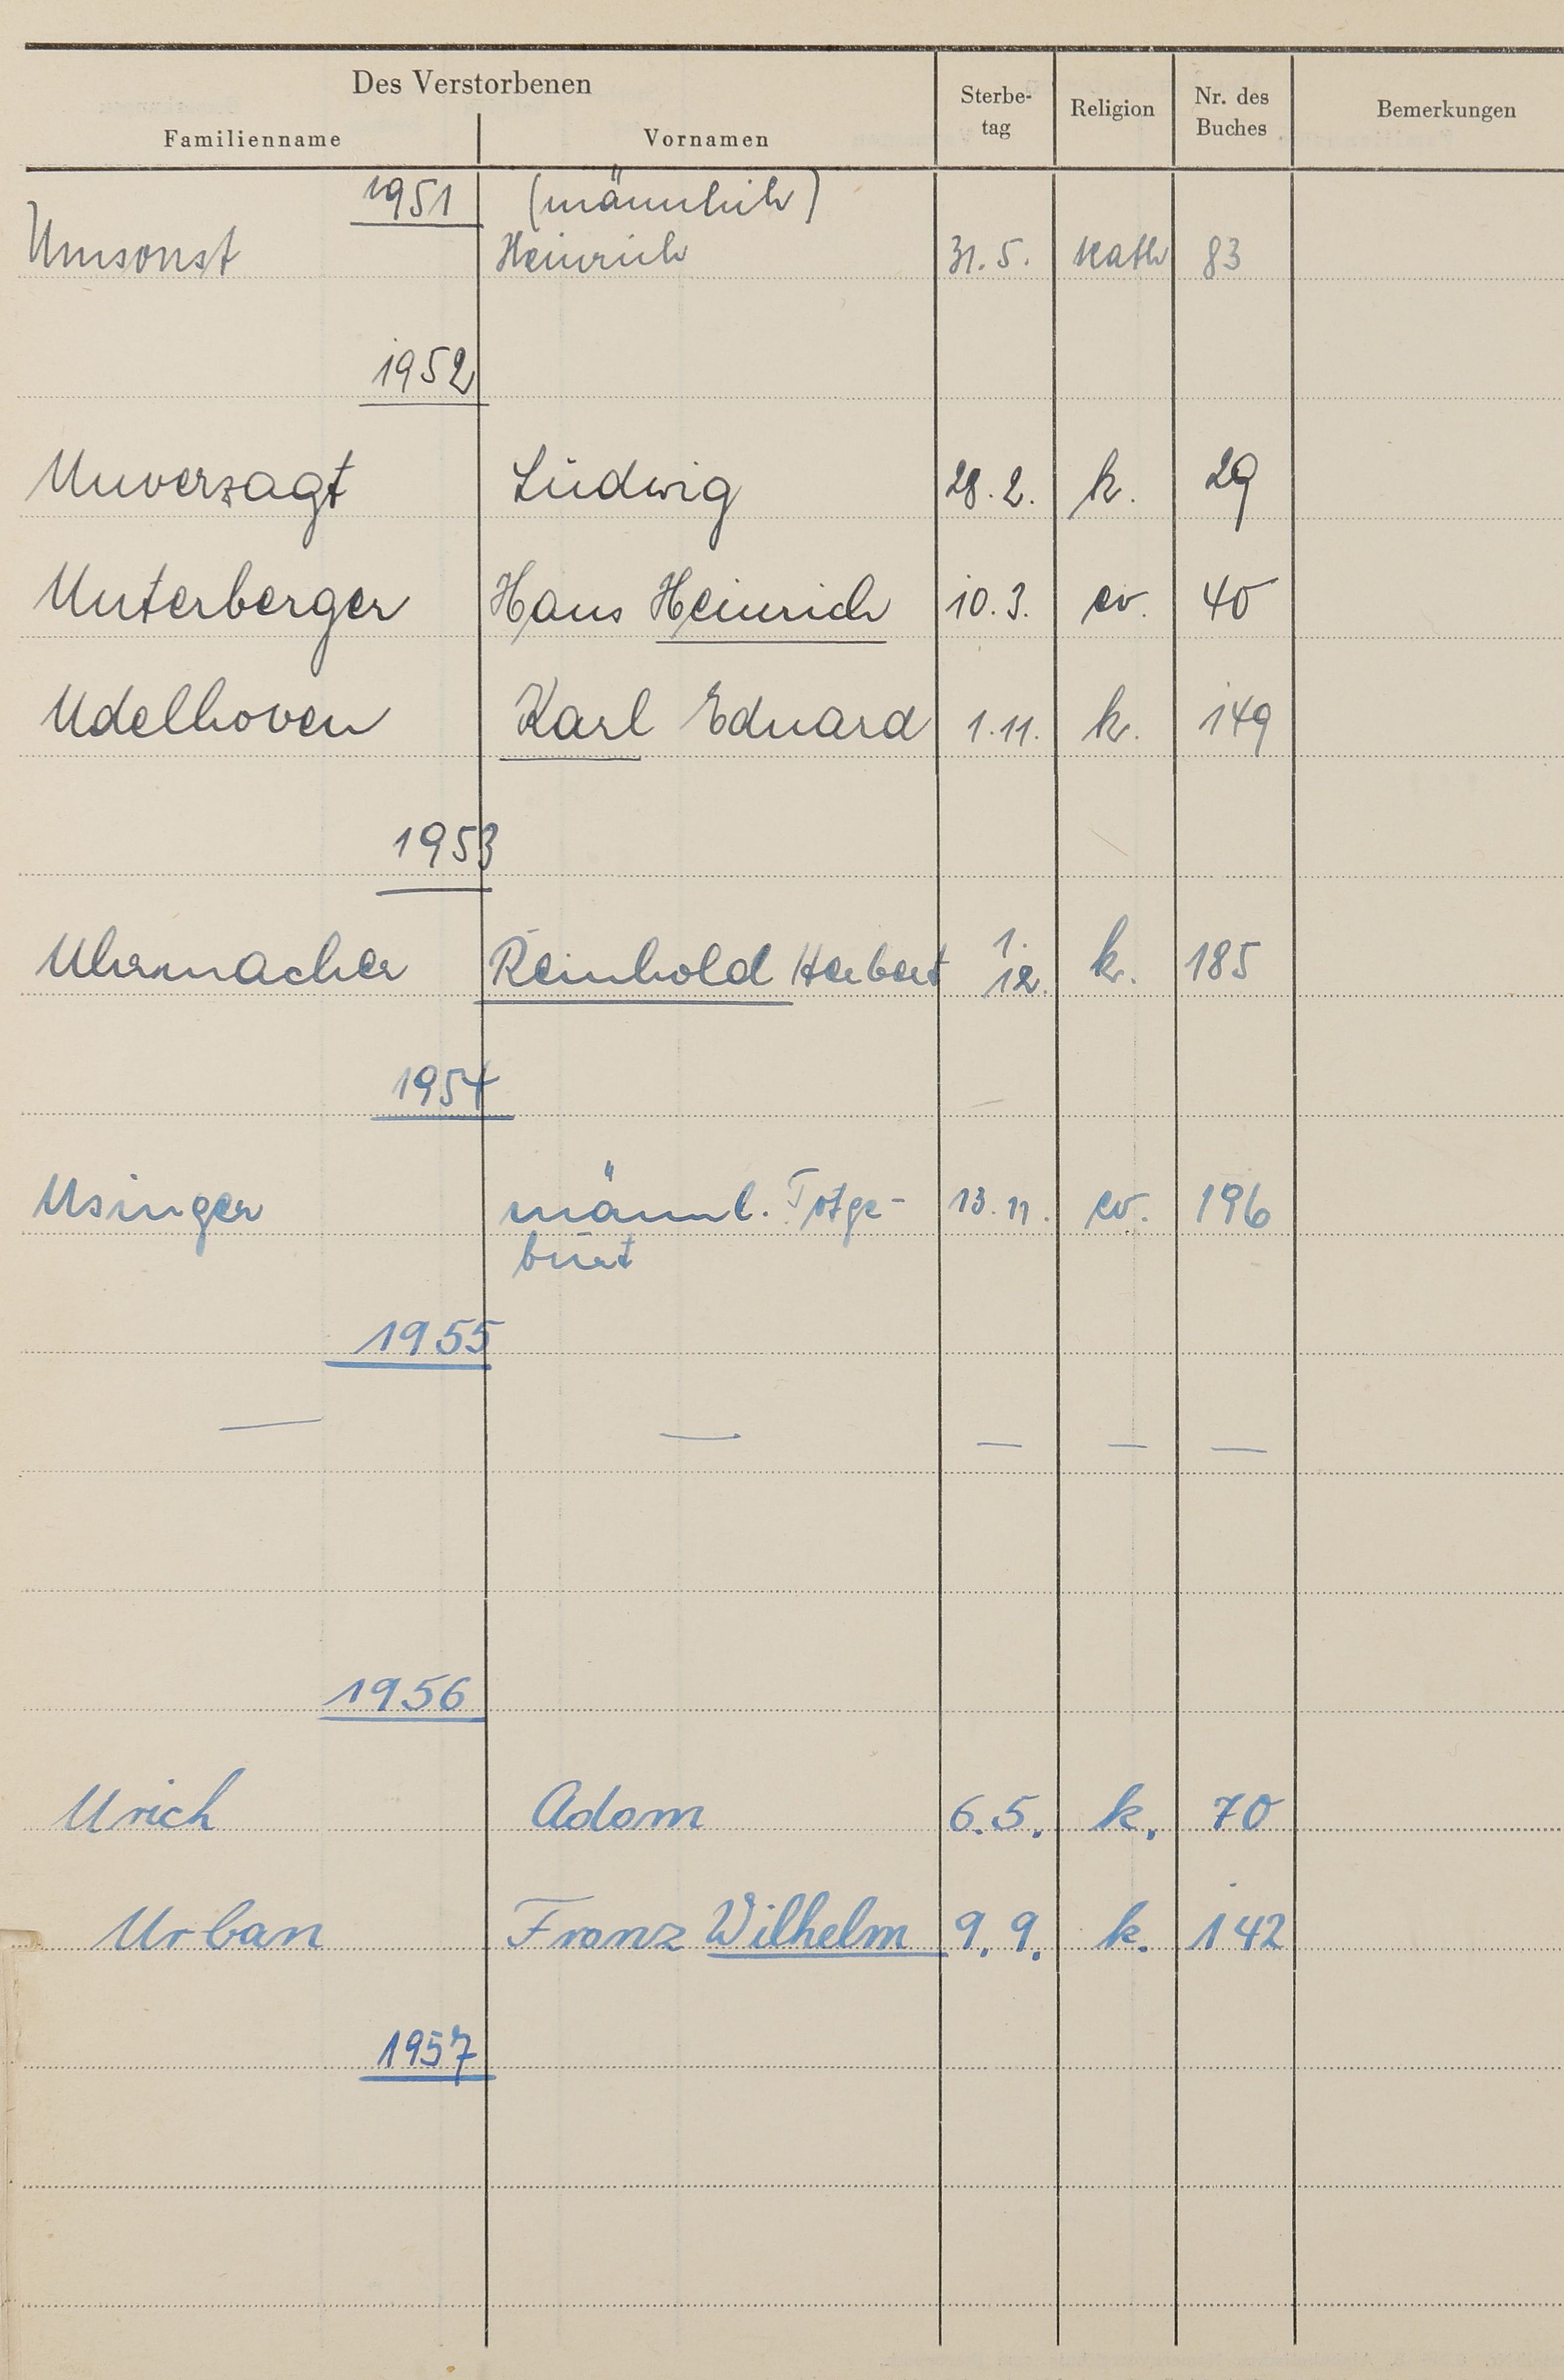 Des Verstorbenen
Familienname Vornamen Sterbe-tag Religion Nr. des Buches Bemerkungen
1951 (männlich)
Umsonst Heinrich 31.5. kath 83
1952
Unverzagt Ludwig 28.2. k. 29
Unterberger Hans Heinrich 10.3. ev. 40
Udelhoven Karl Eduard 1.11. k. 149
1953
Uhrmacher Reinhold Herbert 1.12. k. 185
1954
Usinger männl. Totge- 13.11. ev. 196
burt
1955
— — — — —
1956
Urich Adam 6.5. k. 70
Urban Franz Wilhelm 9.9. k. 142
1957